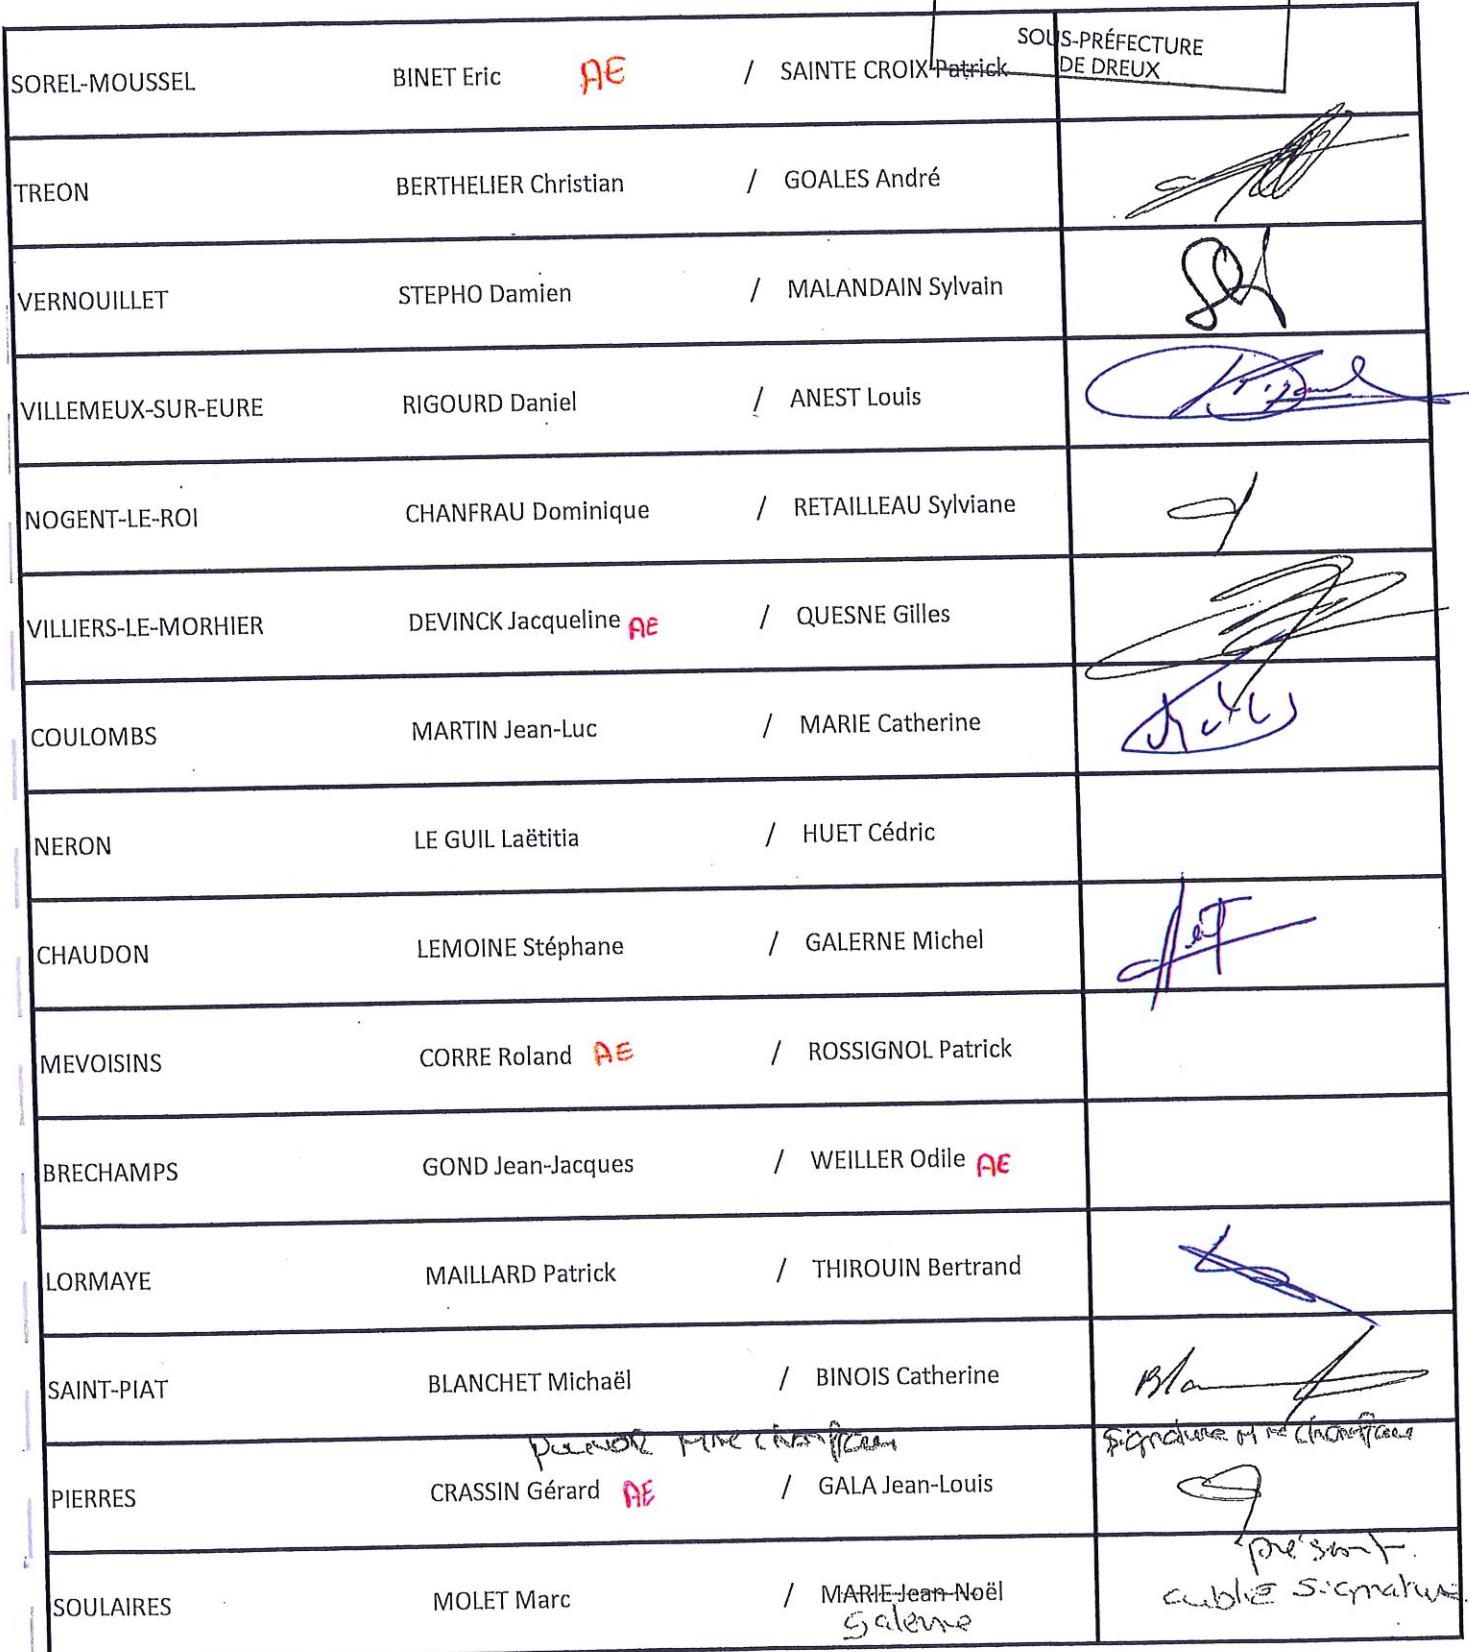 SOUS-PRÉFECTURE
DE DREUX
SOREL-MOUSSEL BINET Eric AE / SAINTE CROIX Patrick
TREON BERTHELIER Christian / GOALES André
VERNOUILLET STEPHO Damien / MALANDAIN Sylvain
VILLEMEUX-SUR-EURE RIGOURD Daniel / ANEST Louis
NOGENT-LE-ROI CHANFRAU Dominique / RETAILLEAU Sylviane
VILLIERS-LE-MORHIER DEVINCK Jacqueline AE / QUESNE Gilles
COULOMBS MARTIN Jean-Luc / MARIE Catherine
NERON LE GUIL Laëtitia / HUET Cédric
CHAUDON LEMOINE Stéphane / GALERNE Michel
MEVOISINS CORRE Roland AE / ROSSIGNOL Patrick
BRECHAMPS GOND Jean-Jacques / WEILLER Odile AE
LORMAYE MAILLARD Patrick / THIROUIN Bertrand
SAINT-PIAT BLANCHET Michaël / BINOIS Catherine
pouvoir Mme Chanfrau signature Mme Chanfrau
PIERRES CRASSIN Gérard AE / GALA Jean-Louis
présent.
SOULAIRES MOLET Marc / MARIE Jean-Noël oublié signature
Galerne